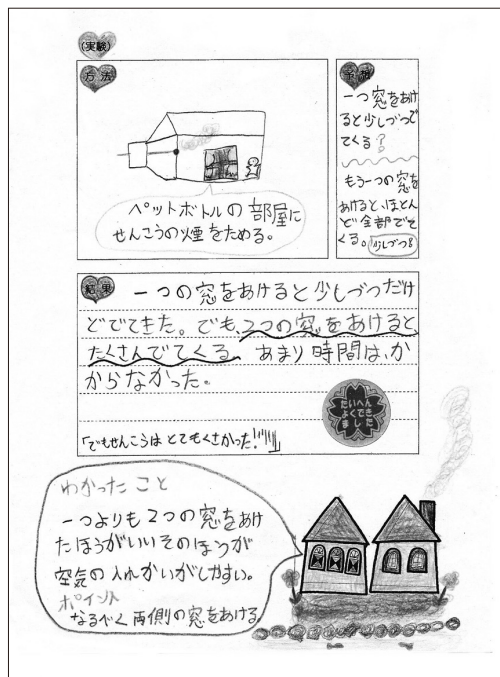 (実験)
方法
ペットボトルの部屋に
せんこうの煙をためる。
予想
一つ窓をあけ
ると少しづつで
てくる?
もう一つの窓を
あけると、ほとん
ど全部でて
くる。少しづつ?
結果
一つの窓をあけると少しづつだけ
どでてきた。でも、2つの窓をあけると、
たくさんでてくる。あまり時間は、か
からなかった。
たいへん
よくでき
ました
「でもせんこうはとてもくさかった!!」
わかったこと
一つよりも2つの窓をあけ
たほうがいいそのほうが
空気の入れかいがしやすい。
ポイント
なるべく両側の窓をあける